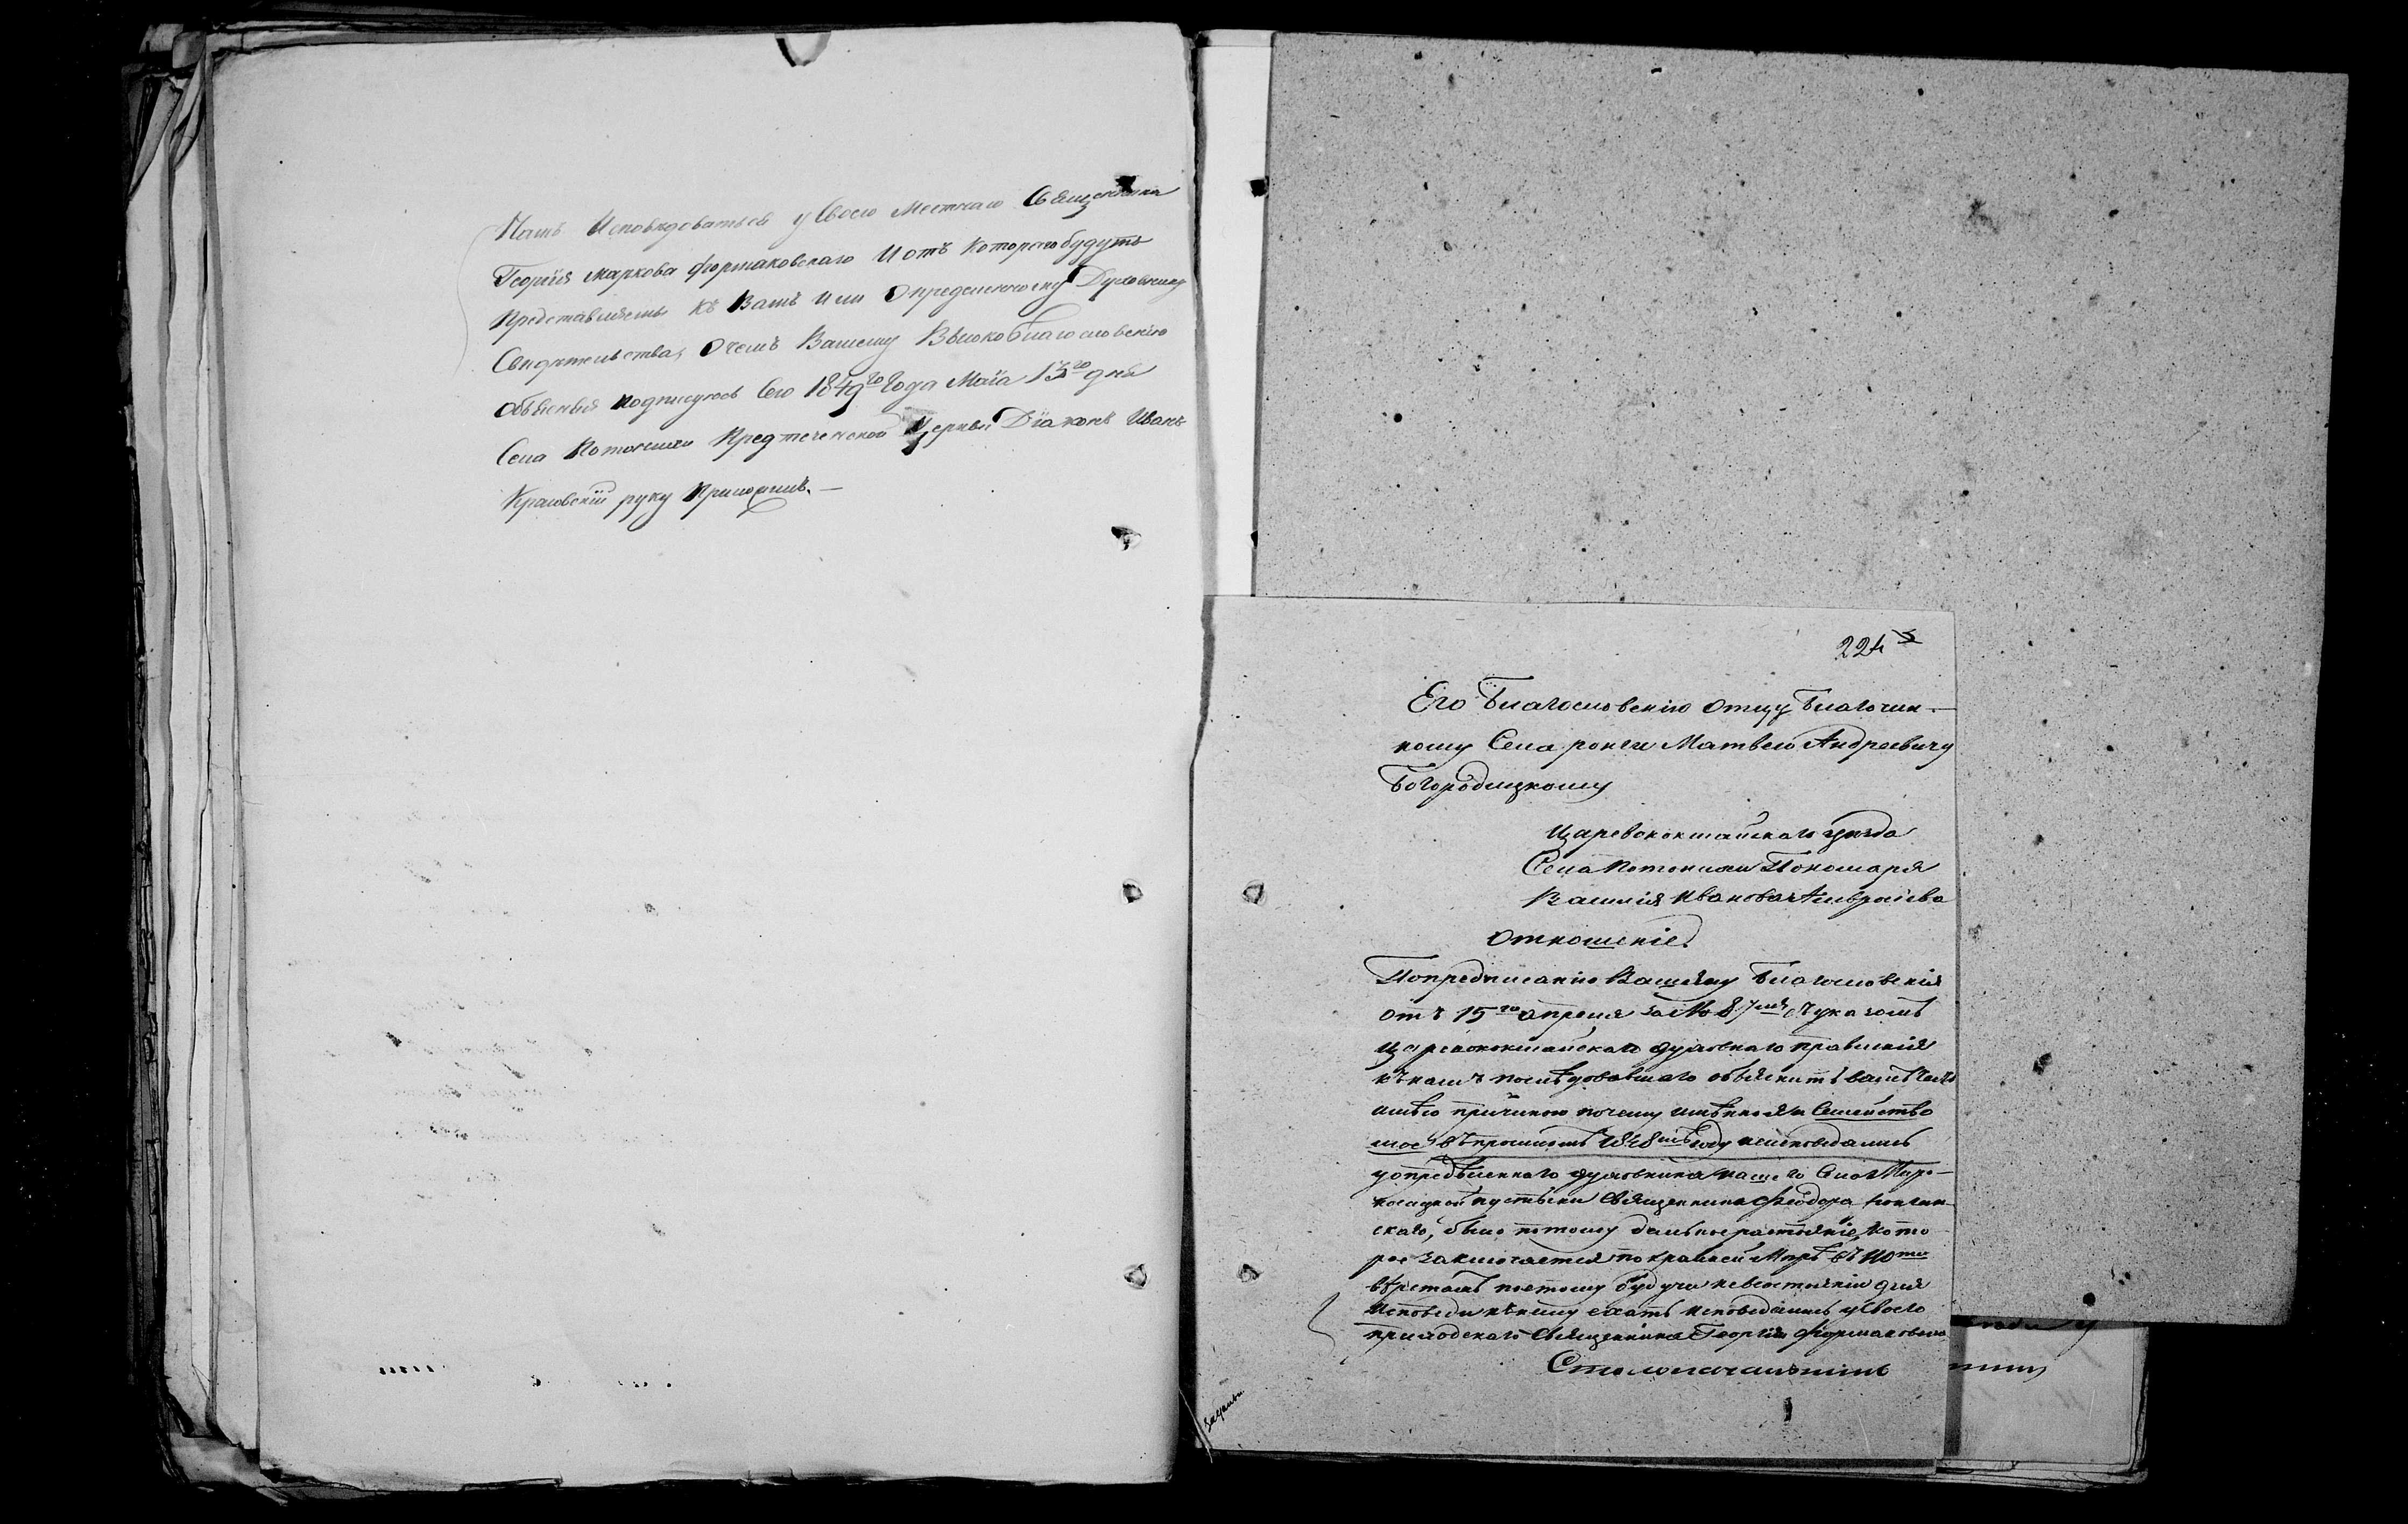 намъ Исповѣдоватьса у Своего Местнаго Священника
Георгія Маркова Формаковскаго И отъ Котораго будутъ
Представлены къ Вамъ Или Определенному Духовнику
Свидѣтельства, О чемъ Вашему Высокоблагословенію
объясняя подписуюсь Сего 1849го Года Маіа 13го дня
Села Потонихи Предтеченской Церкви Діаконъ Иванъ
руку Приложилъ.—
224
Его Благословенію Отцу Благочин-
ному Села ронги Матвею Андреевичу
Богородицкому
Царевококшайскаго уѣзда
Села Потонихи Пономаря
Василія Иванова
Отношеніе
По предписанію Вашему Благословенія
отъ 15го апреля за № 87мъ, съ указомъ
Царевококшайскаго духовнаго правленія
къ намъ последовавшаго объяснить вамъ честь
имѣю причиною почему имѣнно я и Семейство
мое въ прошломъ 1848мъ Году неисповедались
у опредѣленнаго духовника нашего Села Миро-
носицкой пустыни Священника Феодора Ронгин-
скаго, было потому дальное растояніе, кото-
рое заключается по крайней Мерѣ въ 40ти
вѣрстахъ поетому будучи невсостояніи для
Исповеди къ нему ехать исповедались у Своего
приходскаго Священника Георгія Формаковскаго
Столоначальникъ